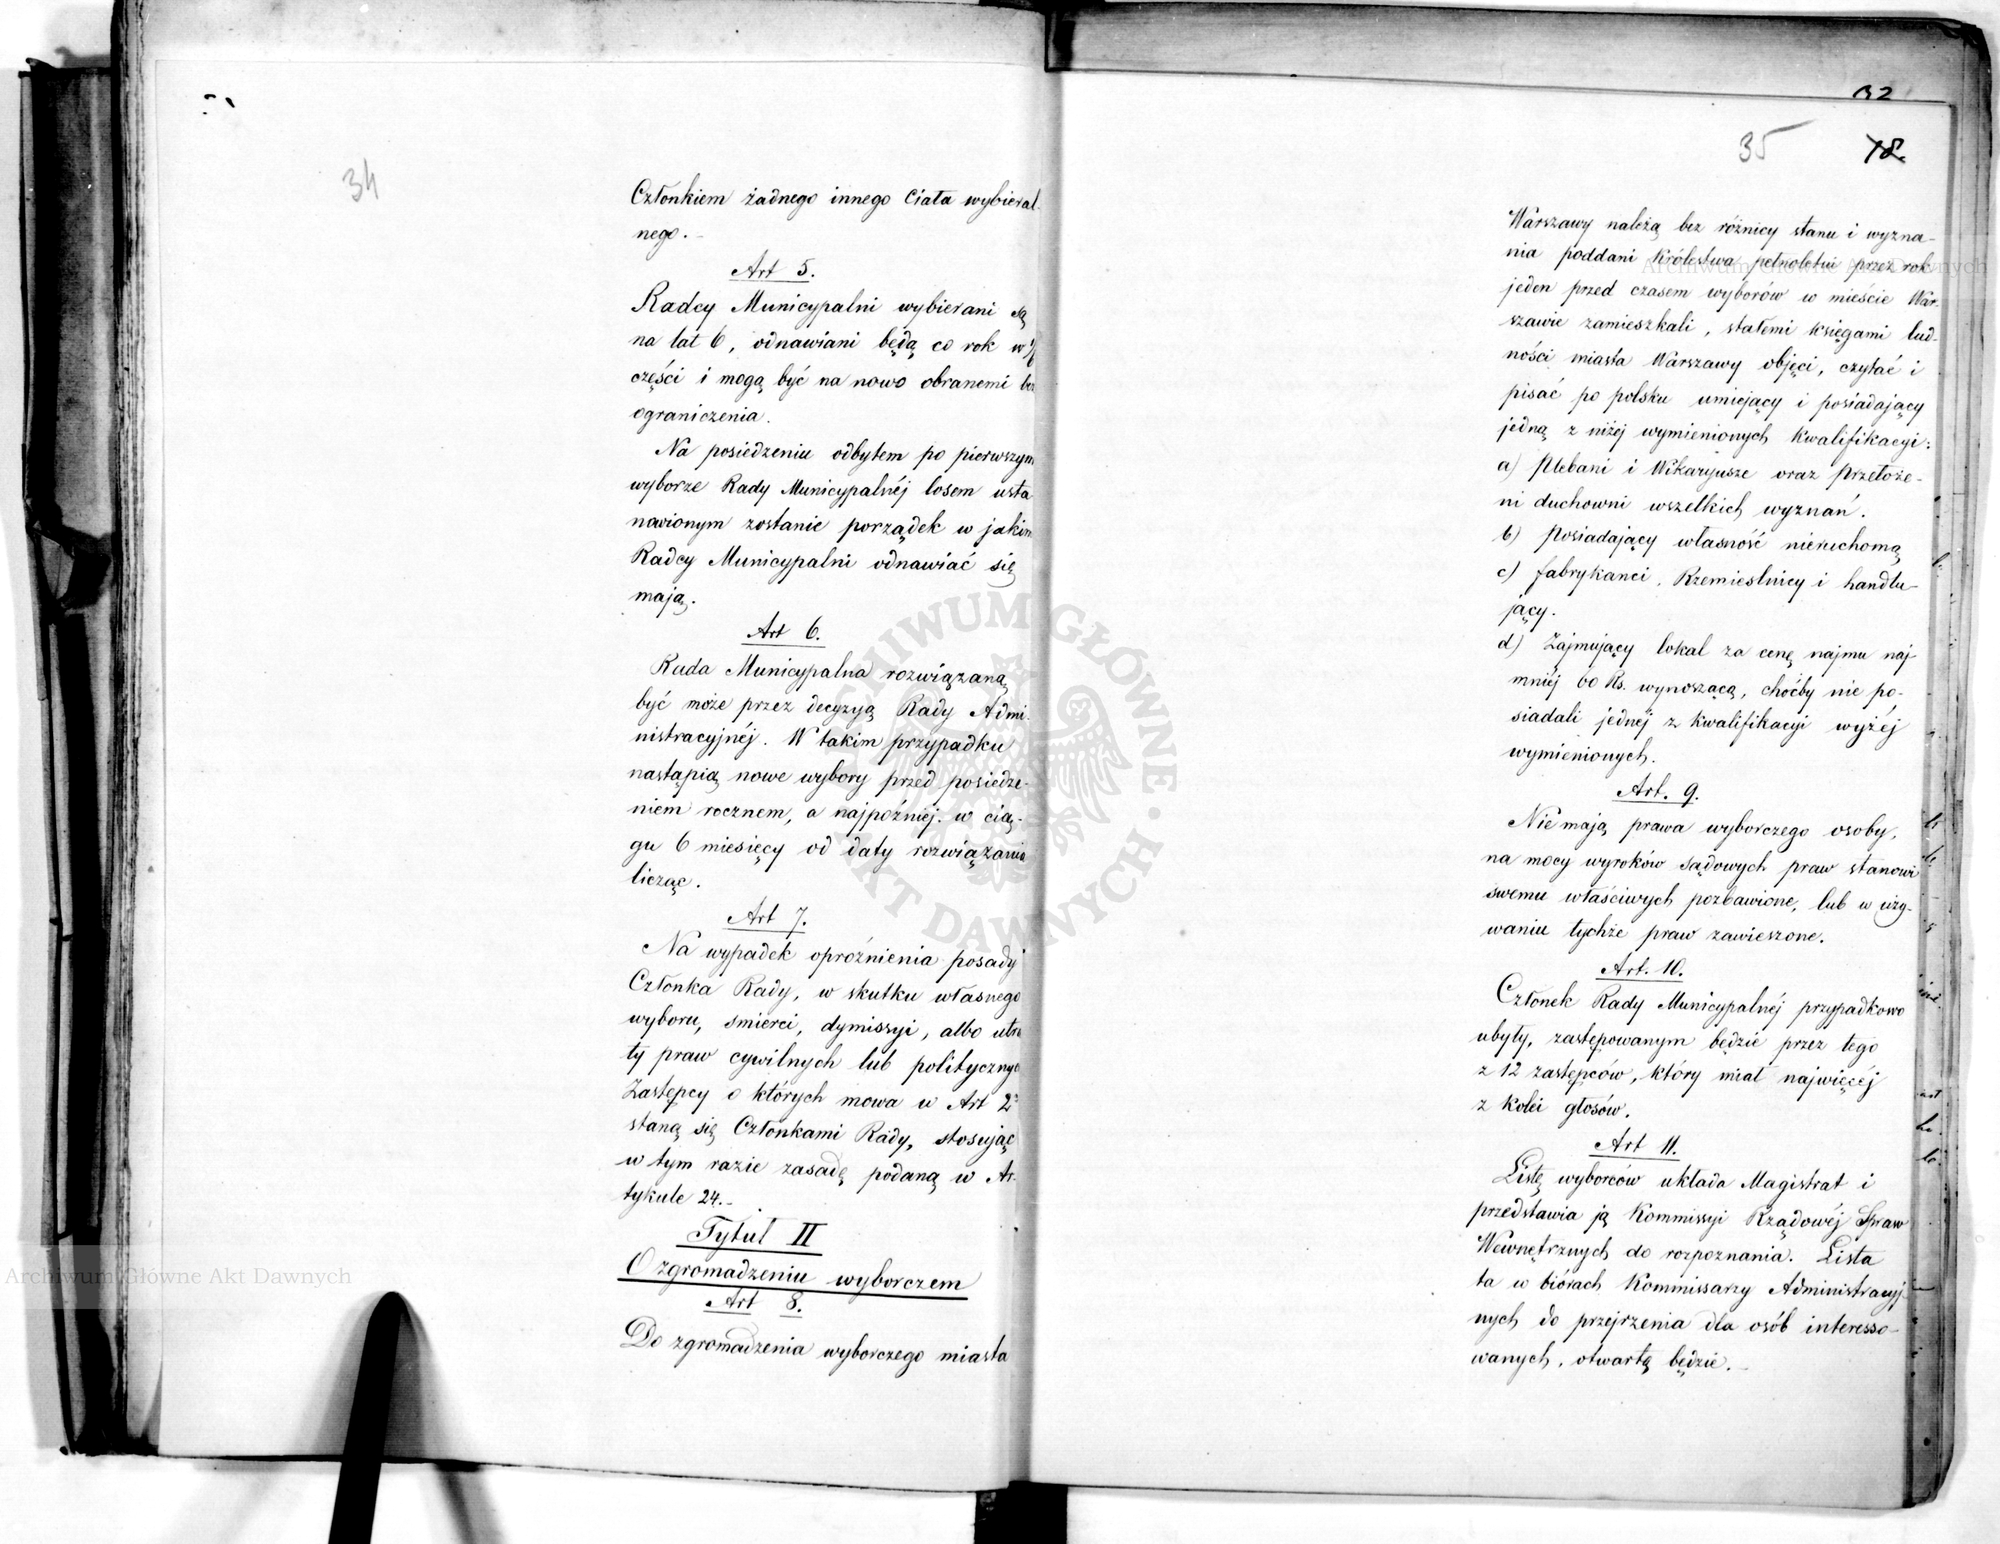 34
Członkiem żadnego innego Ciała wybieral-
nego.-
Art 5.
Radcy Municypalni wybierani są
na lat 6, odnawiani będą co rok w 1/6
części i mogą być na nowo obranemi bez
ograniczenia.
Na posiedzeniu odbytem po pierwszym
wyborze Rady Municypalnéj losem usta-
nowionym zostanie porządek w jakim
Radcy Municypalni odnawiać się
mają.
Art 6.
Rada Municypalna rozwiązaną
być może przez decyzyą Rady Admi-
nistracyjnéj. W takim przypadku
nastąpią nowe wybory przed posiedze-
niem rocznem, a najpóźniéj w cią-
gu 6 miesięcy od daty rozwiązania
licząc.
Art 7.
Na wypadek opróżnienia posady
Członka Rady, w skutku własnego
wyboru, śmierci, dymissyi, albo utra
ty praw cywilnych lub politycznych
Zastępcy o których mowa w Art 2
staną się Członkami Rady, stosując
w tym razie zasadę podaną w Ar-
tykule 24.-
Tytuł II
O zgromadzeniu wyborczem
Art 8.
Do zgromadzenia wyborczego miasta
32
35 18.
Warszawy należą bez różnicy stanu i wyzna-
nia poddani Królestwa pełnoletni przez rok
jeden przed czasem wyborów w mieście War-
szawie zamieszkali, stałemi księgami lud-
ności miasta Warszawy objęci, czytać i
pisać po polsku umiejący i posiadający
jedną z niżéj wymienionych kwalifikacyi:
a) Plebani i Wikaryusze oraz Przełoże-
ni duchowni wszelkich wyznań.
b) Posiadający własność nieruchomą
c) Fabrykanci, Rzemieślnicy i handlu-
jący.
d) Zajmujący lokal za cenę najmu naj-
mniéj 60 Rs. wynoszącą, choćby nie po-
siadali jednéj z kwalifikacyi wyżéj
wymienionych.
Art. 9.
Nie mają prawa wyborczego osoby,
na mocy wyroków sądowych praw stanowi
swemu właściwych pozbawione, lub w uży-
waniu tychże praw zawieszone.
Art. 10.
Członek Rady Municypalnéj przypadkowo
ubyły, zastępowanym będzie przez tego
z 12 zastępców, który miał najwięcéj
z kolei głosów.
Art 11.
Listę wyborców układa Magistrat i
przedstawia ją Kommissyi Rządowéj Spraw
Wewnętrznych do rozpoznania. Lista
ta w biórach Kommissarzy Administracyj-
nych do przejrzenia dla osób interesso-
wanych, otwartą będzie.-
ARCHIWUM GŁÓWNE AKT DAWNYCH
Archiwum Główne Akt Dawnych
Archiwum Główne Akt Dawnych